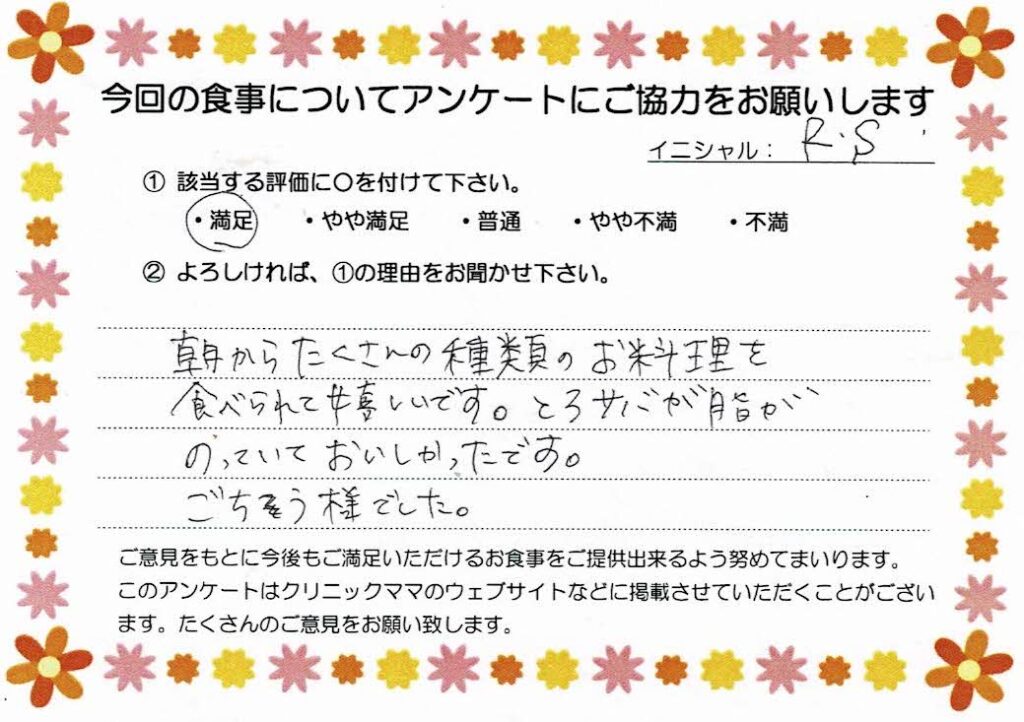 今回の食事についてアンケートにご協力をお願いします
イニシャル： R.S
① 該当する評価に〇を付けて下さい。
・満足 ・やや満足 ・普通 ・やや不満 ・不満
② よろしければ、①の理由をお聞かせ下さい。
朝からたくさんの種類のお料理を
食べられて嬉しいです。とろサバが脂が
のっていておいしかったです。
ごちそう様でした。
ご意見をもとに今後もご満足いただけるお食事をご提供出来るよう努めてまいります。
このアンケートはクリニックママのウェブサイトなどに掲載させていただくことがござい
ます。たくさんのご意見をお願い致します。